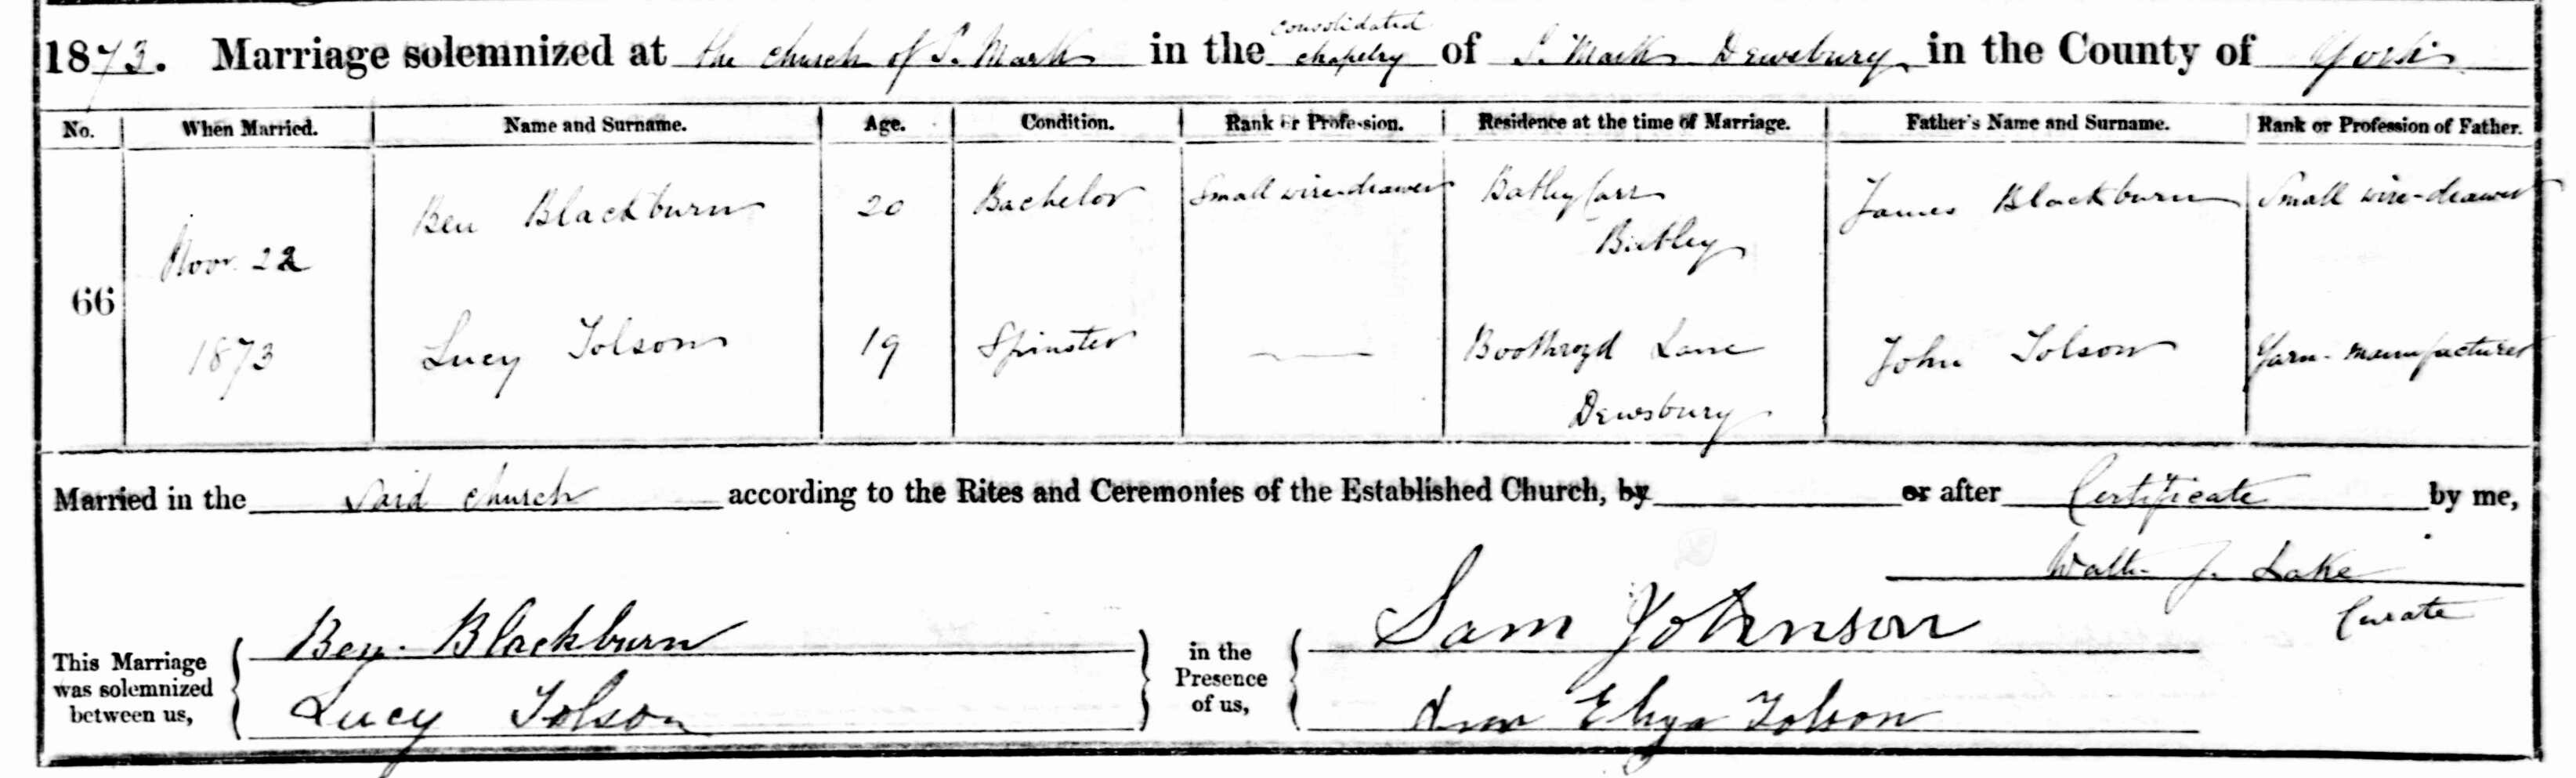 1873. Marriage solemnized at the church of S. Mark in the consolidated chapelry of S. Mark Dewsbury in the County of York
No. When Married. Name and Surname. Age. Condition. Rank or Profession. Residence at the time of Marriage. Father's Name and Surname. Rank or Profession of Father.
66 Nov. 22 1873
Ben Blackburn 20 Bachelor Small wire-drawer Batley Carr Batley James Blackburn Small wire-drawer
Lucy Tolson 19 Spinster — Boothroyd Lane Dewsbury John Tolson Yarn-manufacturer
Married in the said church according to the Rites and Ceremonies of the Established Church, by or after Certificate by me,
Walter J. Lake
Curate
This Marriage was solemnized between us, Ben Blackburn in the Presence of us, Sam Johnson
Lucy Tolson Ann Eliza Tolson